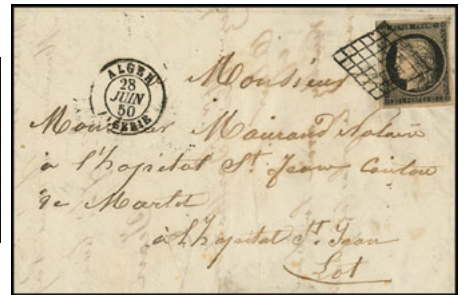 ALGER
28
JUIN
50
ALGERIE
Monsieur
Monsieur Mairand Notaire
à l'hopital St Jean Canton
de Martel
à l'hopital St Jean
Lot